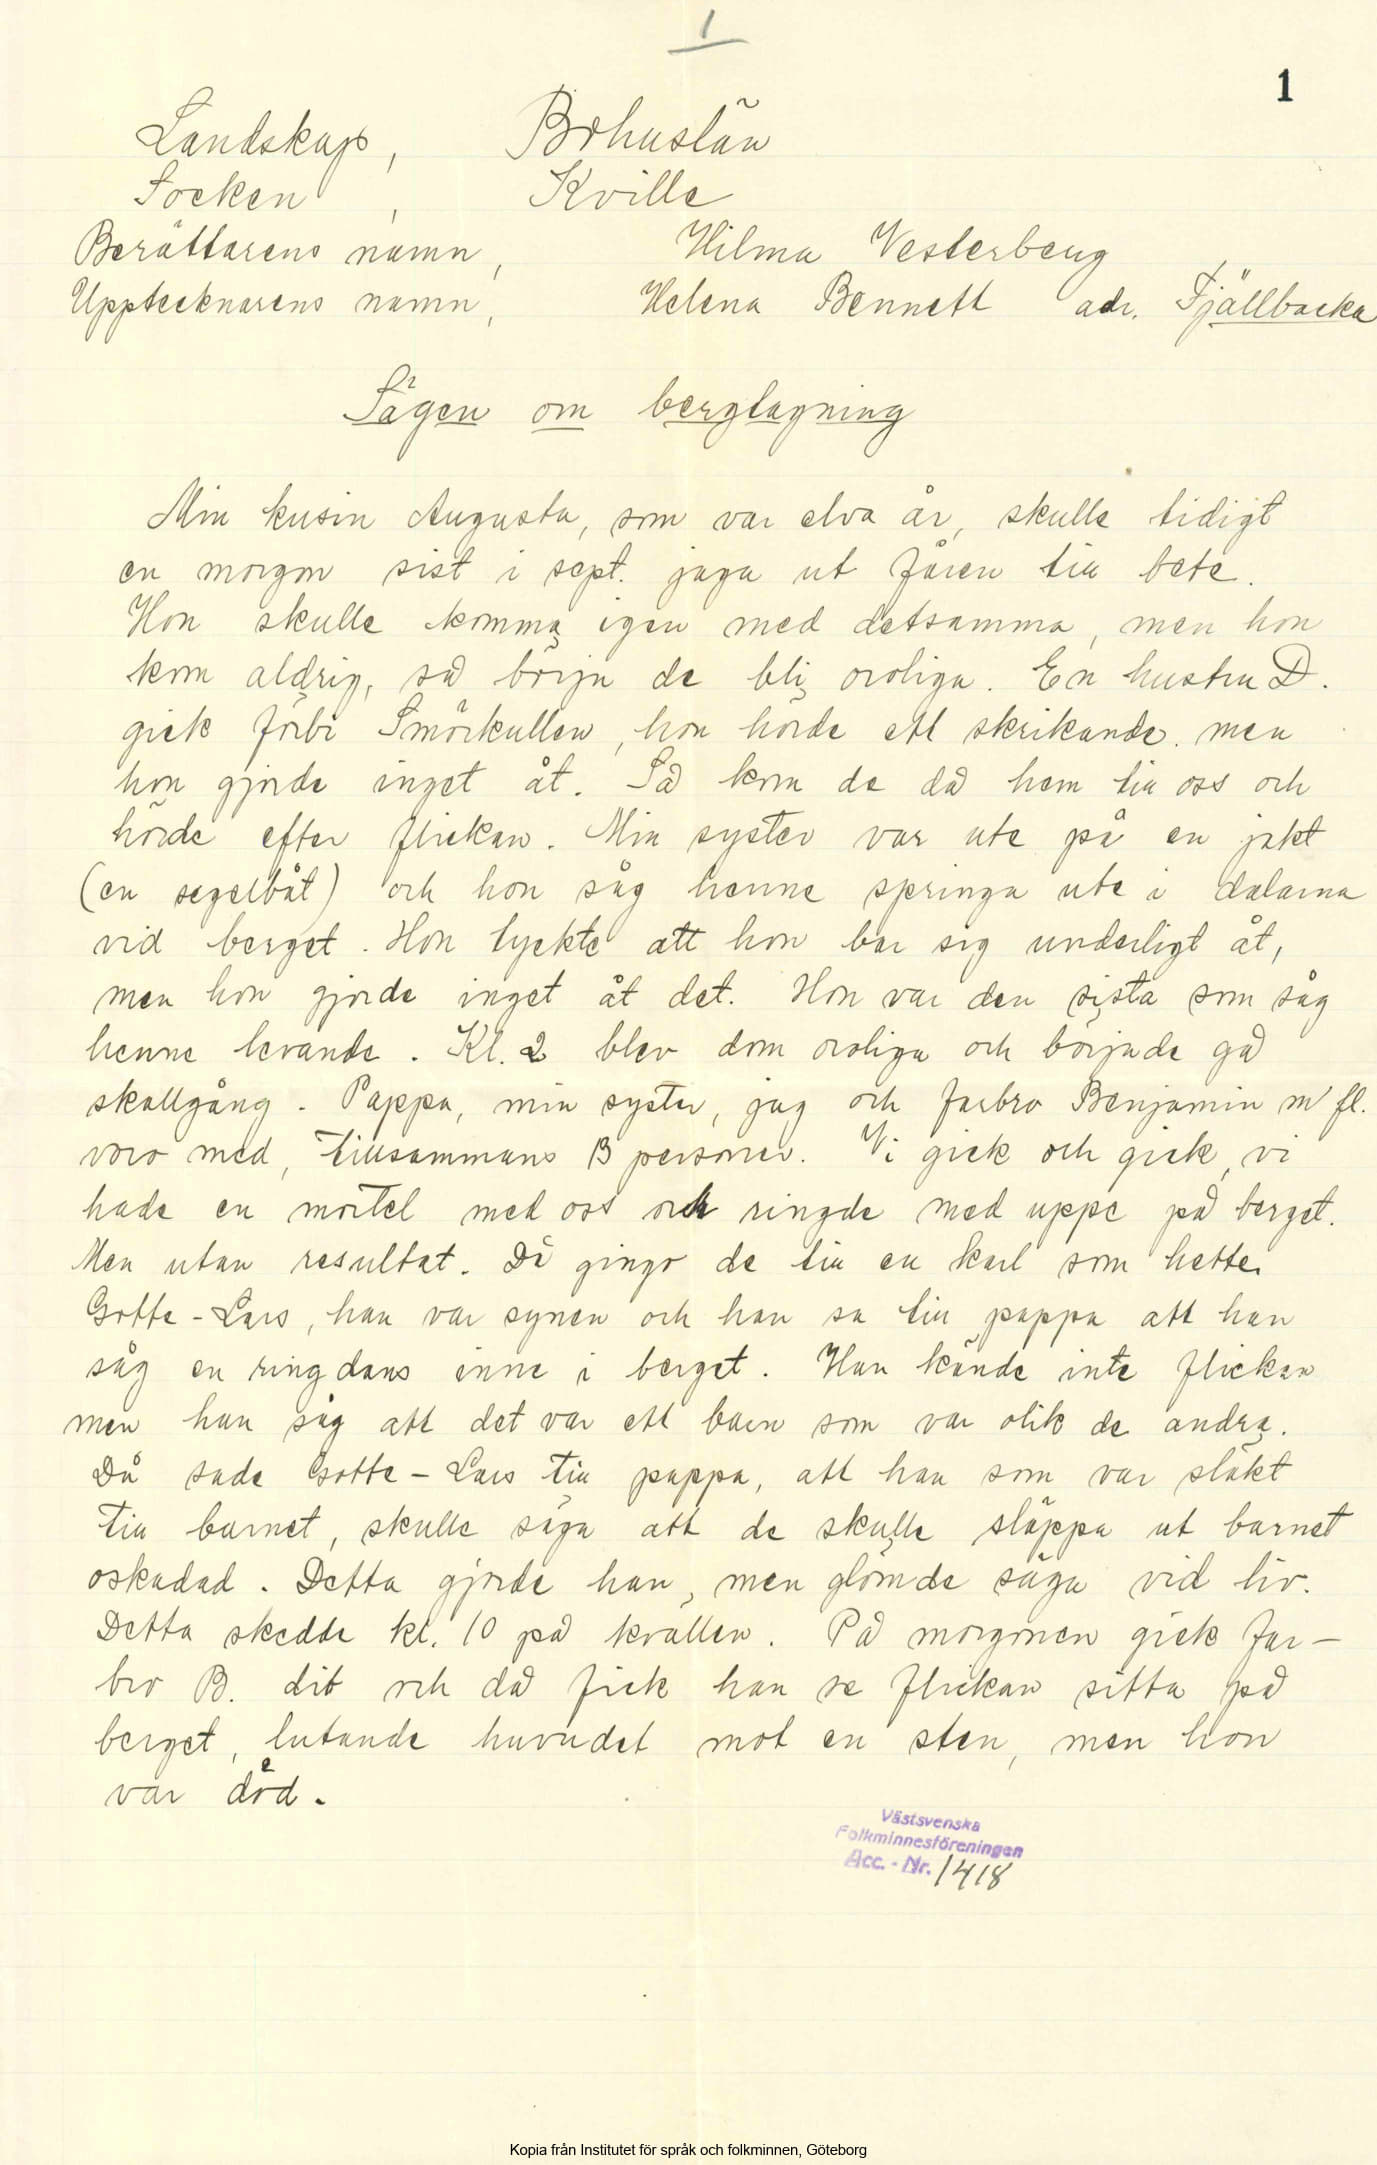 1
1
Landskap, Bohuslän
Socken, Kville
Berättarens namn, Hilma Vesterberg
Upptecknarens namn, Helena Bennett adr. Fjällbacka
Sägen om bergtagning
Min kusin Augusta, som var elva år, skulle tidigt
en morgon sist i sept. jaga ut fåren till bete.
Hon skulle komma igen med detsamma, men hon
kom aldrig, så börja de bli oroliga. En hustru D.
gick förbi Smörkullen, hon hörde ett skrikande. men
hon gjorde inget åt. Så kom de då hem till oss och
hörde efter flickan. Min syster var ute på en jakt
(en segelbåt) och hon såg henne springa ute i dalarna
vid berget. Hon tyckte att hon bar sig underligt åt,
men hon gjorde inget åt det. Hon var den sista som såg
henne levande. Kl. 2 blev dom oroliga och började gå
skallgång. Pappa, min syster, jag och farbro Benjamin m fl.
voro med, tillsammans 13 personer. Vi gick och gick, vi
hade en mortel med oss och ringde med uppe på berget.
Men utan resultat. Då gingo de till en karl som hette
Gotte-Lars, han var synen och han sa till pappa att han
såg en ringdans inne i berget. Han kände inte flickan
men han såg att det var ett barn som var olik de andra.
Då sade Gotte-Lars till pappa, att han som var släkt
till barnet, skulle säga att de skulle släppa ut barnet
oskadad. Detta gjorde han, men glömde säga vid liv.
Detta skedde kl. 10 på kvällen. På morgonen gick far-
bro B. dit och då fick han se flickan sitta på
berget, lutande huvudet mot en sten, men hon
var död.
Västsvenska
Folkminnesföreningen
Acc. - Nr. 1418
Kopia från Institutet för språk och folkminnen, Göteborg